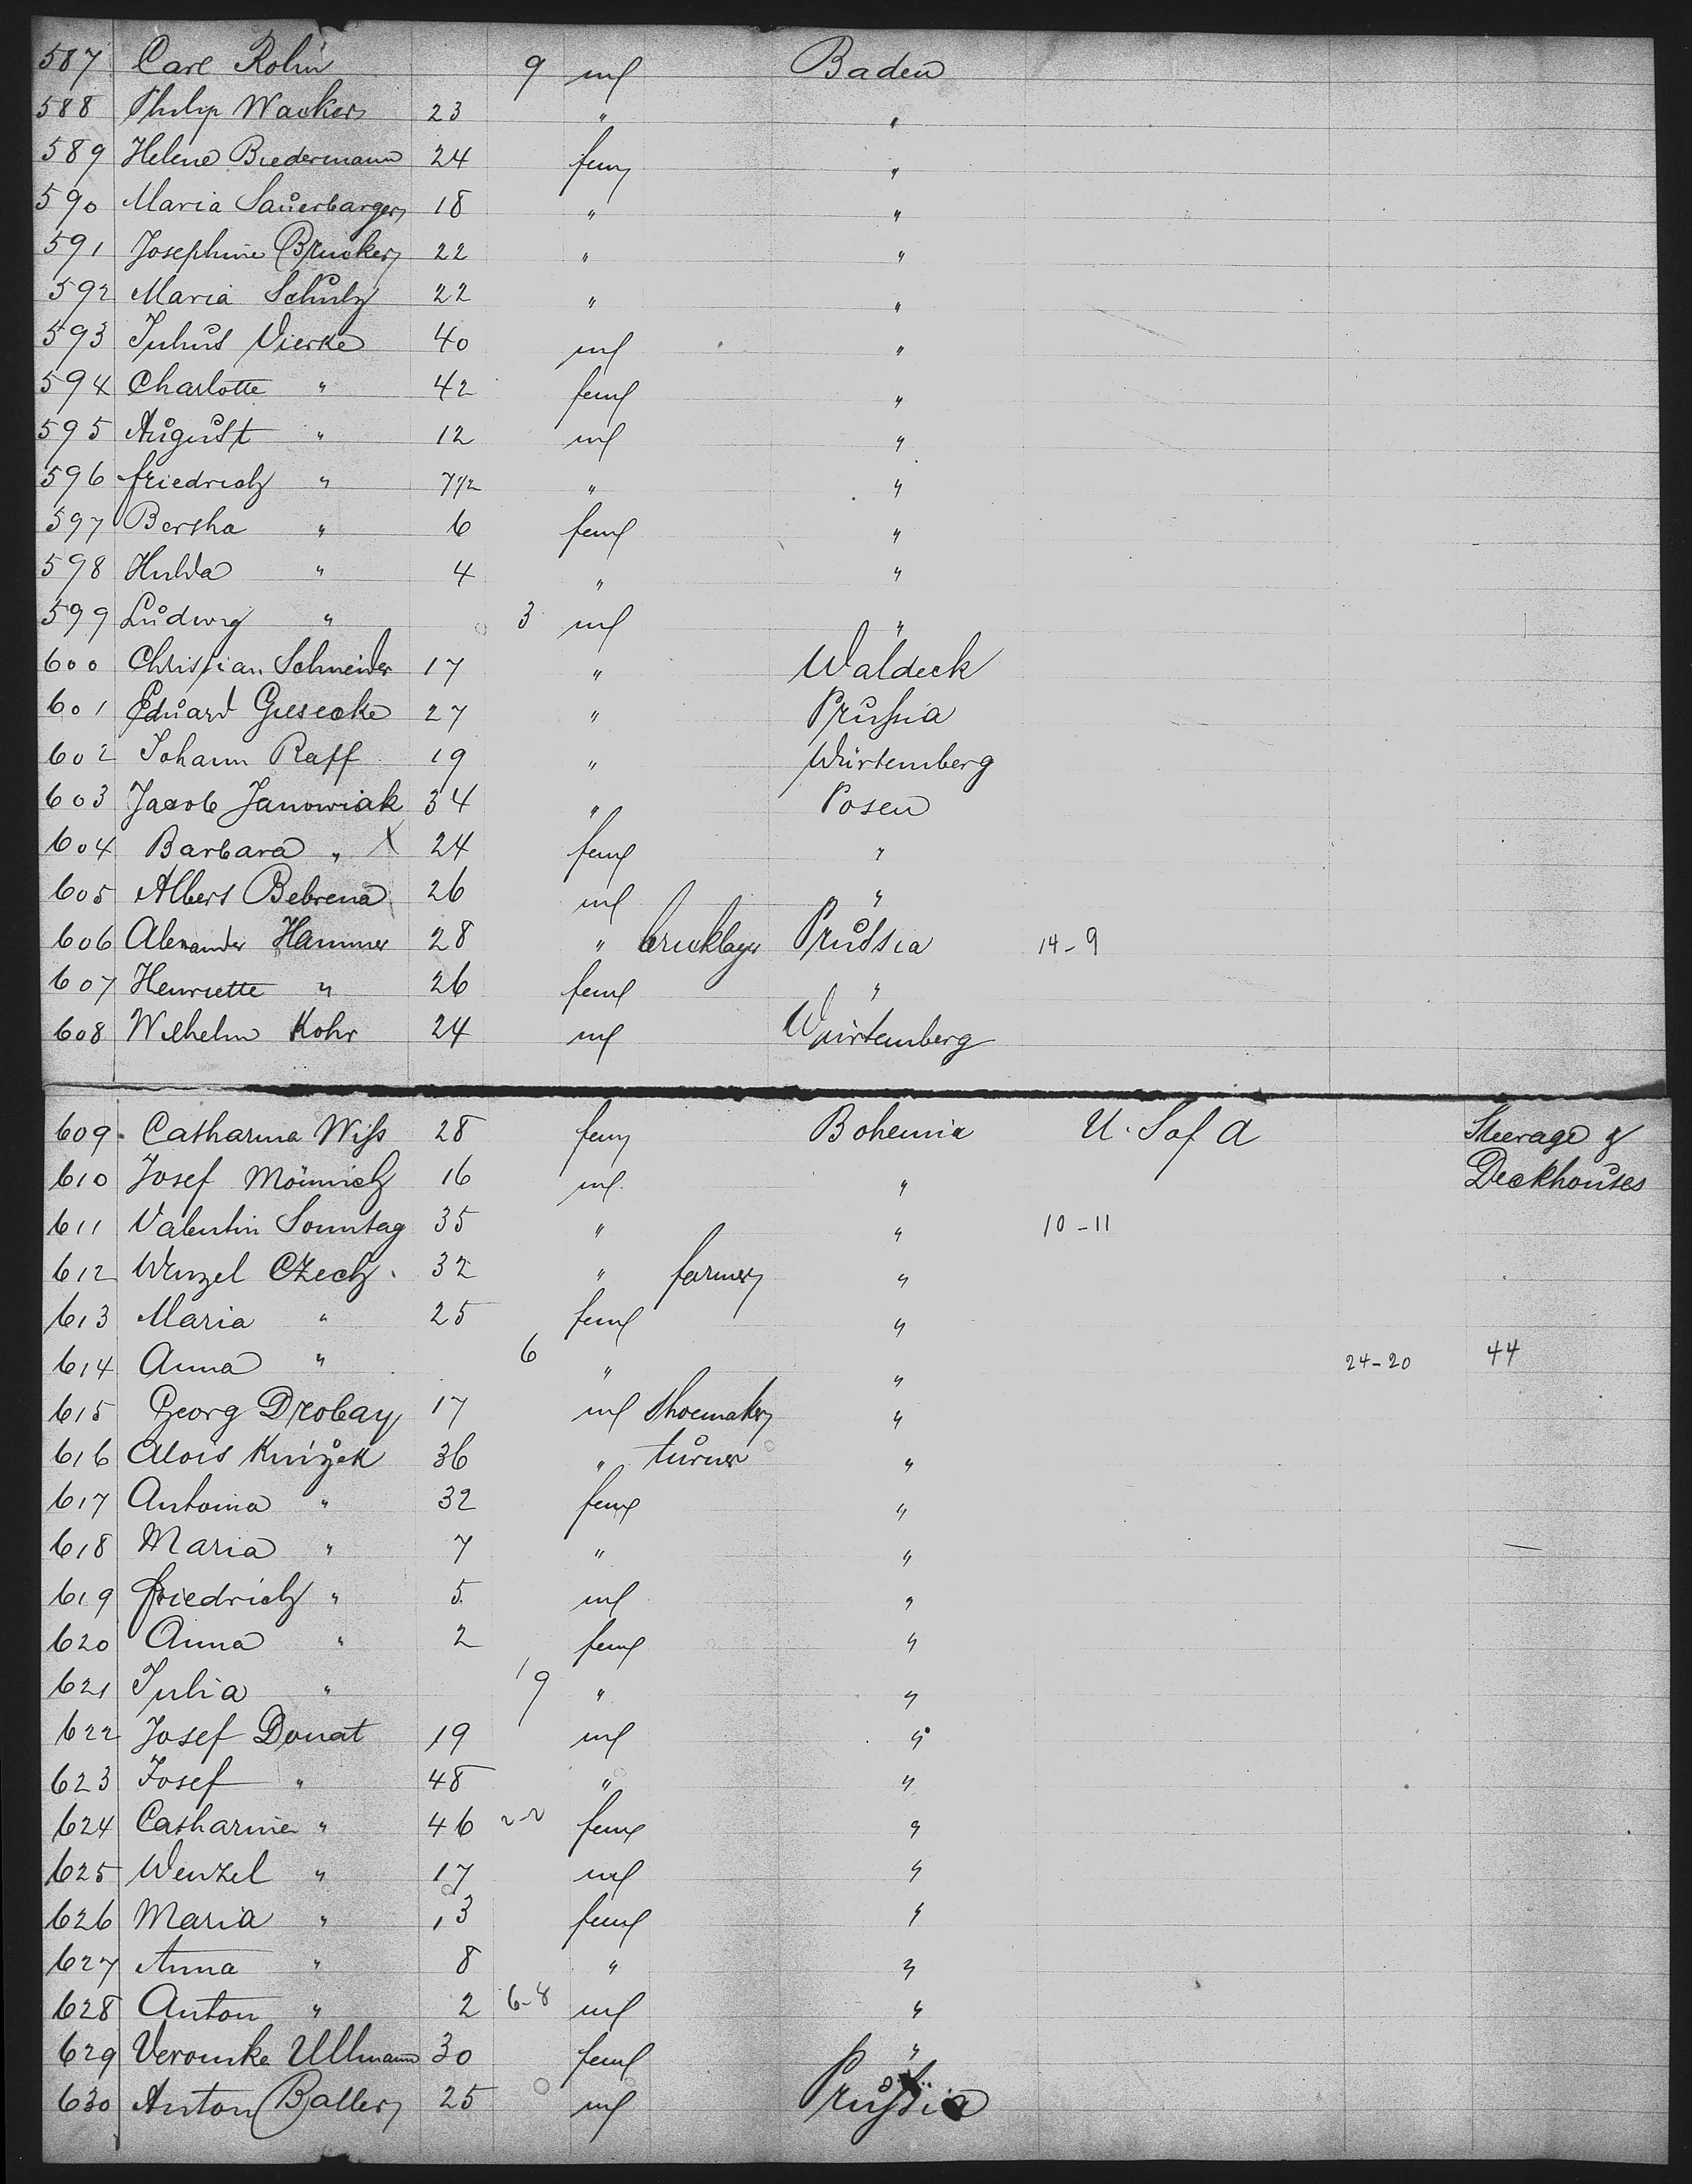 587 Carl Rohn 9 ml Baden
588 Philip Wacker 23 " "
589 Helene Biedermann 24 fem "
590 Maria Sauerbarger 18 " "
591 Josephine Brucker 22 " "
592 Maria Schulz 22 " "
593 Julius Vierke 40 ml "
594 Charlotte " 42 feml "
595 August " 12 ml "
596 friedrich " 7 1/2 " "
597 Bertha " 6 feml "
598 Hulda " 4 " "
599 Ludwig " 3 ml "
600 Christian Schneider 17 " Waldeck
601 Eduard Giesecke 27 " Prussia
602 Johann Raff 19 " Würtemberg
603 Jacob Janowiak 34 " Posen
604 Barbara " X 24 feml "
605 Albert Bebrena 26 ml "
606 Alexander Hammer 28 " bricklayer Prussia 14-9
607 Henriette " 26 feml "
608 Wilhelm Kohr 24 ml Würtemberg
609 Catharina Wiss 28 fem Bohemia U. S of A Steerage &
610 Josef Mönnich 16 ml " Deckhouses
611 Valentin Sonntag 35 " " 10-11
612 Wenzel Czech 32 " farmer "
613 Maria " 25 feml "
614 Anna " 6 " " 24-20 44
615 Georg Drobay 17 ml Shoemaker "
616 Alois Knizek 36 " turner "
617 Antonia " 32 feml "
618 Maria " 7 " "
619 friedrich " 5 ml "
620 Anna " 2 feml "
621 Julia " 9 " "
622 Josef Donat 19 ml "
623 Josef " 48 " "
624 Catharine " 46 2-2 feml "
625 Wenzel " 17 ml "
626 Maria " 13 feml "
627 Anna " 8 " "
628 Anton " 2 6-8 ml "
629 Veronika Ullmann 30 feml "
630 Anton Baller 25 ml Prussia